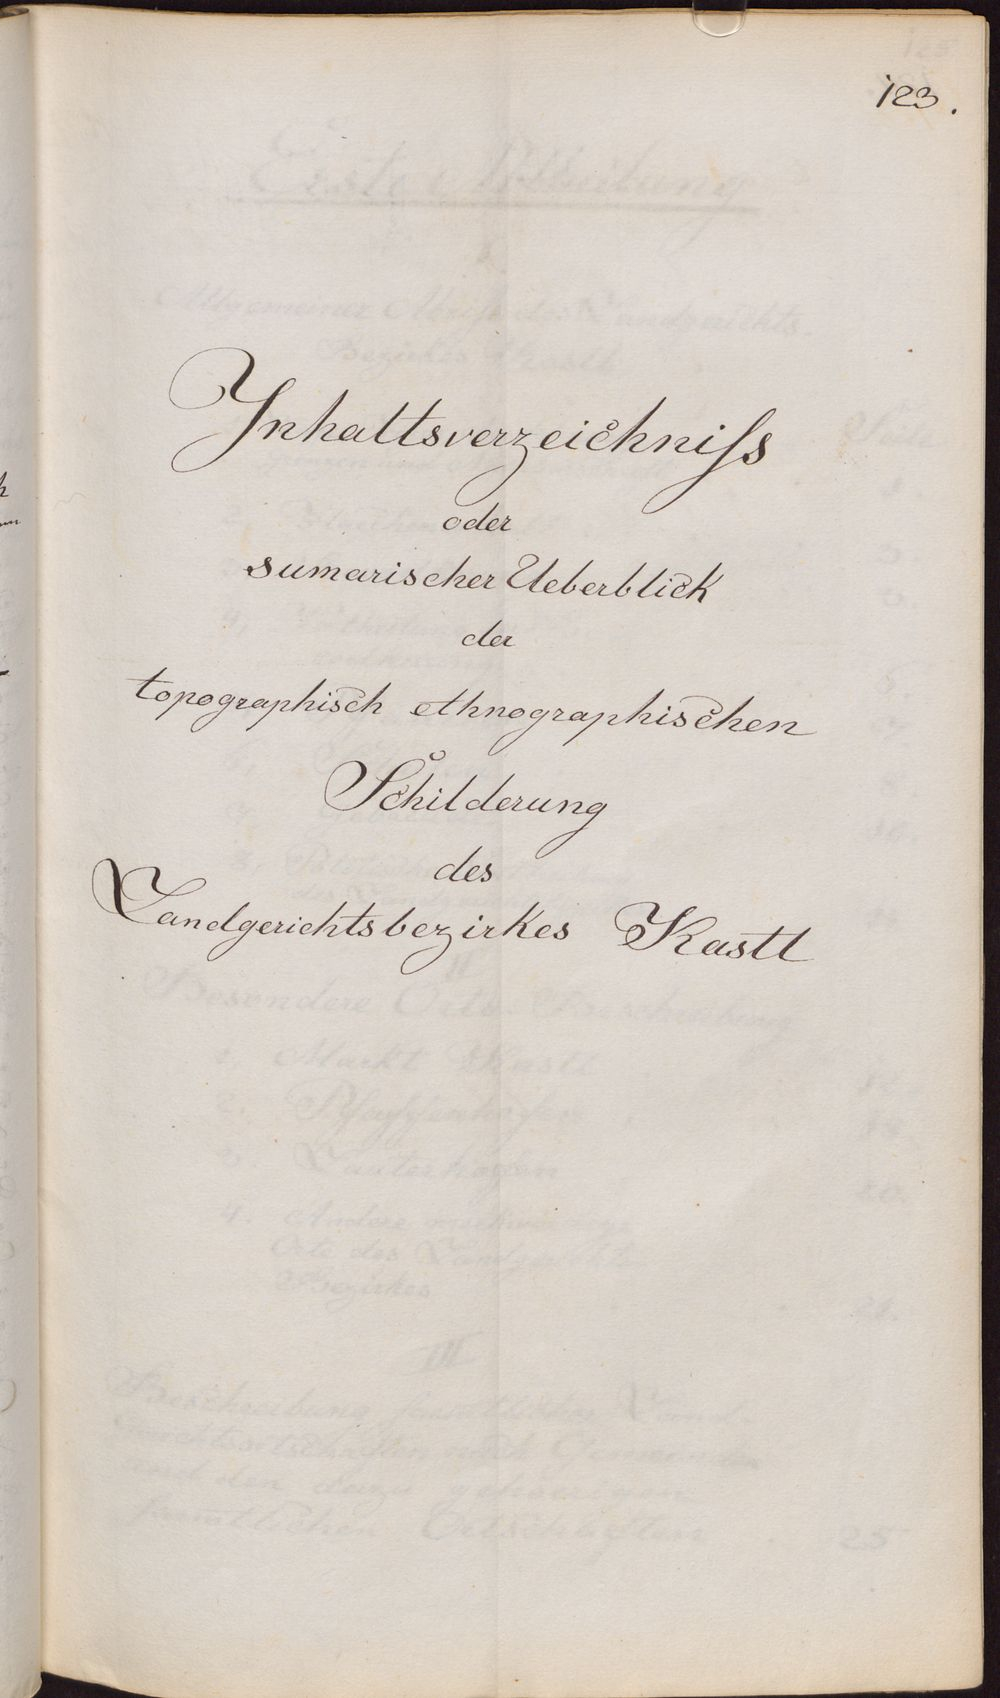 123.
Inhaltsverzeichniſs
oder
sumarischer Ueberblick
der
topographisch ethnographischen
Schilderung
des
Landgerichtsbezirkes Kastl